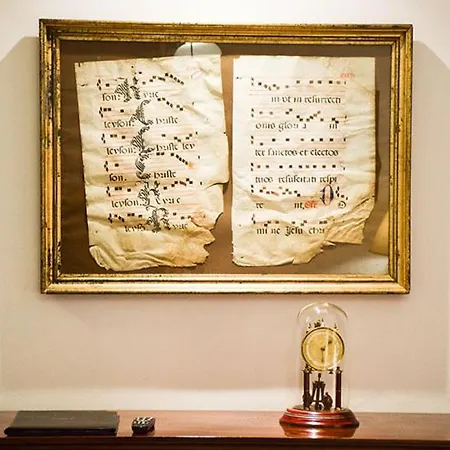 son. Kyrie
leyson. Christe
leyson Christe ley
son. Christe
leyson Kyrie
leyson Kyrie
ni vt in resurrecti
onis gloria in
ter sanctos et electos
tuos resuscitati respi
re nt. O
mi ne Jesu chri